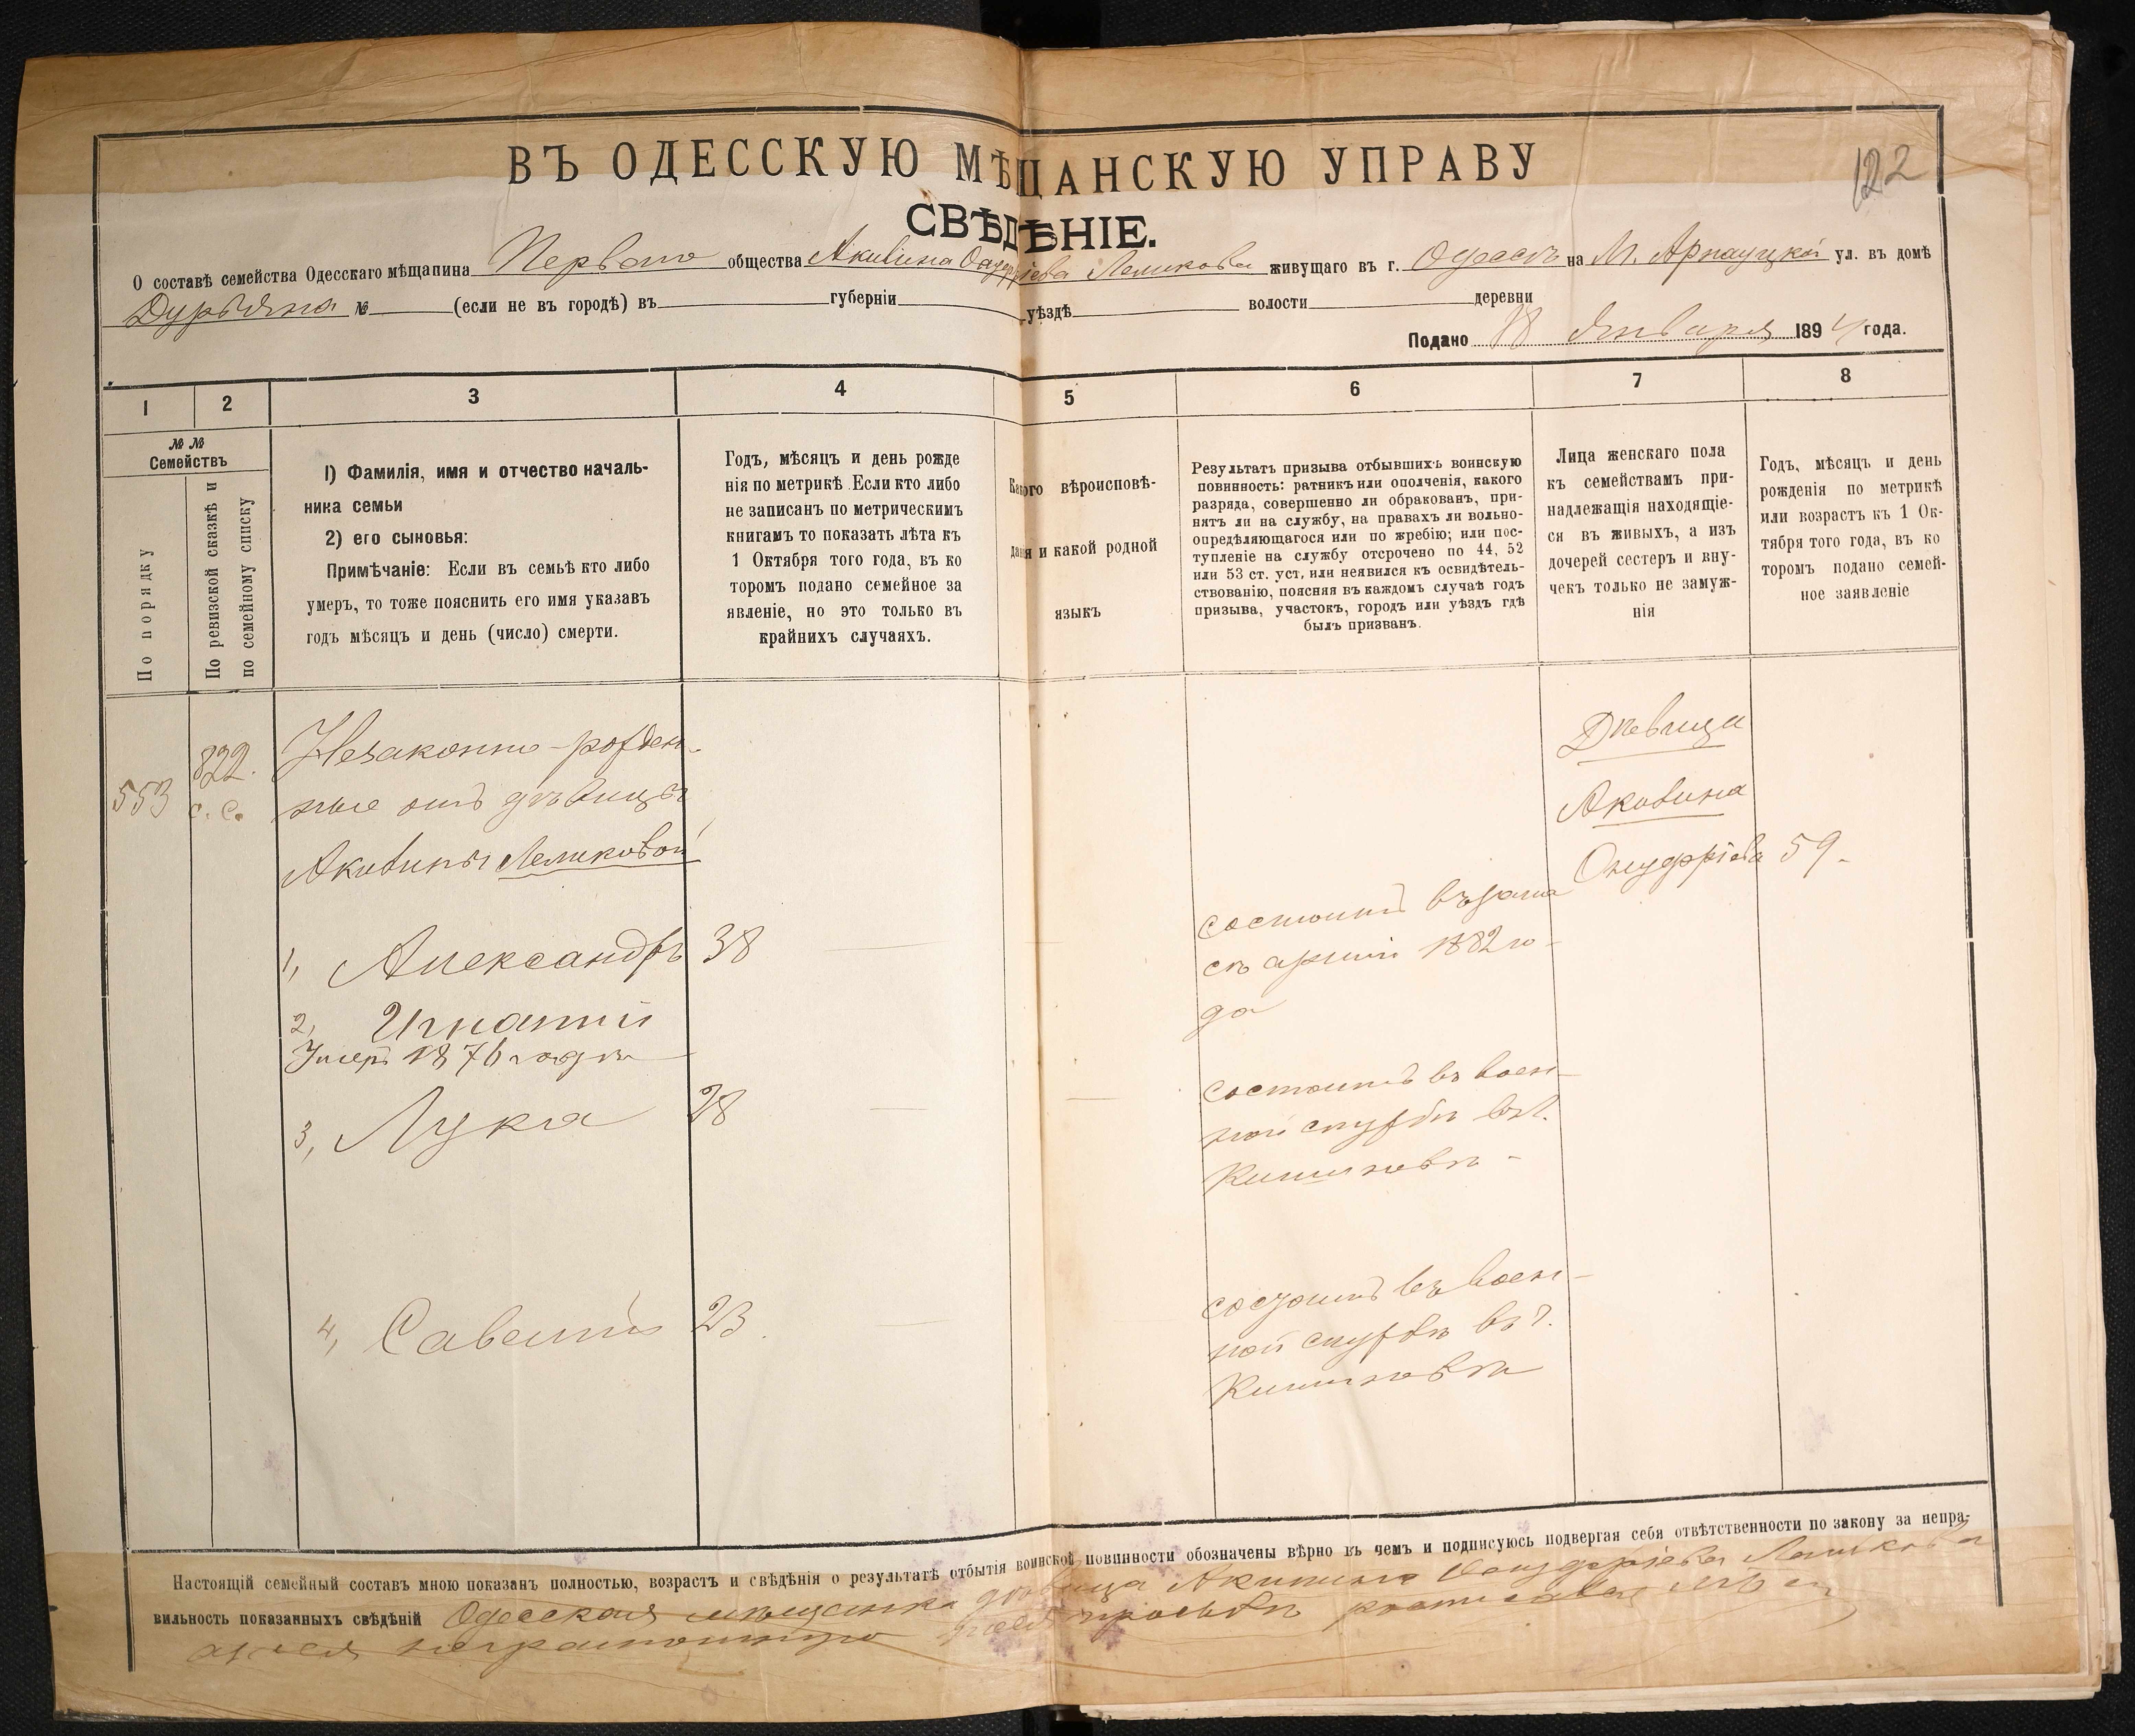 122
ВЪ ОДЕССКУЮ МѢЩАНСКУЮ УПРАВУ
СВѢДѢНІЕ.
О составѣ семейства Одесскаго мѣщанина Перваго общества Акивина Лешкова живущаго въ г. Одессѣ на М. Арнаутской ул. въ домѣ
Дурьяна № (если не въ городѣ) въ губерніи уѣздѣ волости деревни
Подано 18 Января 1894 года.
1 2 3 4 5 6 7 8
№ №
Семействъ
По порядку
По ревизской сказкѣ и
по семейному списку
1) Фамилія, имя и отчество началь-
ника семьи
2) его сыновья:
Примѣчаніе: Если въ семьѣ кто либо
умеръ, то тоже пояснить его имя указавъ
годъ мѣсяцъ и день (число) смерти.
Годъ, мѣсяцъ и день рожде
нія по метрикѣ. Если кто либо
не записанъ по метрическимъ
книгамъ то показать лѣта къ
1 Октября того года, въ ко
торомъ подано семейное за
явленіе, но это только въ
крайнихъ случаяхъ.
Какого вѣроисповѣ-
данія и какой родной
языкъ
Результатъ призыва отбывшихъ воинскую
повинность: ратникъ или ополченія, какого
разряда, совершенно ли обракованъ, при-
нятъ ли на службу, на правахъ ли вольно-
опредѣляющагося или по жребію; или пос-
тупленіе на службу отсрочено по 44, 52
или 53 ст. уст, или неявился къ освидѣтель-
ствованію, поясняя въ каждомъ случаѣ годъ
призыва, участокъ, городъ или уѣздъ гдѣ
былъ призванъ.
Лица женскаго пола
къ семействамъ при-
надлежащія находящіе-
ся въ живыхъ, а изъ
дочерей сестеръ и вну-
чекъ только не замуж-
нія
Годъ, мѣсяцъ и день
рожденія по метрикѣ
или возрастъ къ 1 Ок-
тября того года, въ ко
торомъ подано семей-
ное заявленіе
553
822.
с. с.
Незаконно-рожден-
ные отъ дѣвицы
Акивины Лешковой
1, Александръ 38
2, Игнатій
Умеръ 1876 года
3, Лука 28
4, Савелій 23
состоитъ въ запа
съ арміи 1882 го-
да
состоитъ въ воен-
ной службѣ въ г.
Кишиневѣ -
состоитъ въ воен-
ной службѣ въ г.
Кишиневѣ
Дѣвица
Акивина
Онуфріева 59.
Настоящій семейный составъ мною показанъ полностью, возрастъ и свѣдѣнія о результатѣ отбытія воинской повинности обозначены вѣрно въ чемъ и подписуюсь подвергая себя отвѣтственности по закону за непра-
вильность показанныхъ свѣдѣній Одесская мѣщанка дѣвица Акилина Онуфріева Лешкова
неграмотную просьбѣ росписался